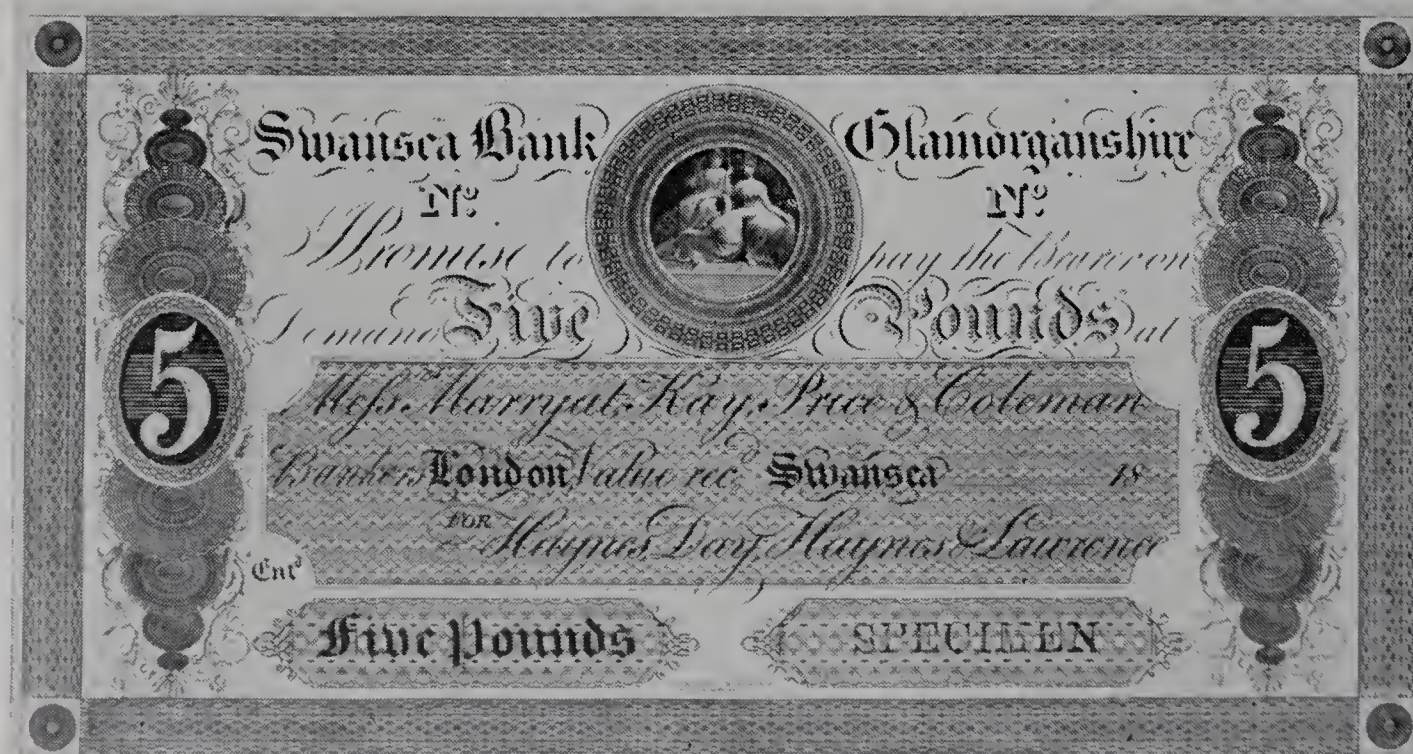 Swansea Bank Glamorganshire
No. No.
I Promise to pay the Bearer on
Demand Five Pounds at
5 5
Messrs. Marryat, Kay, Price & Coleman
Bankers London Value recd. Swansea 18
FOR Haynes, Day, Haynes & Lawrence
Entd.
Five Pounds SPECIMEN